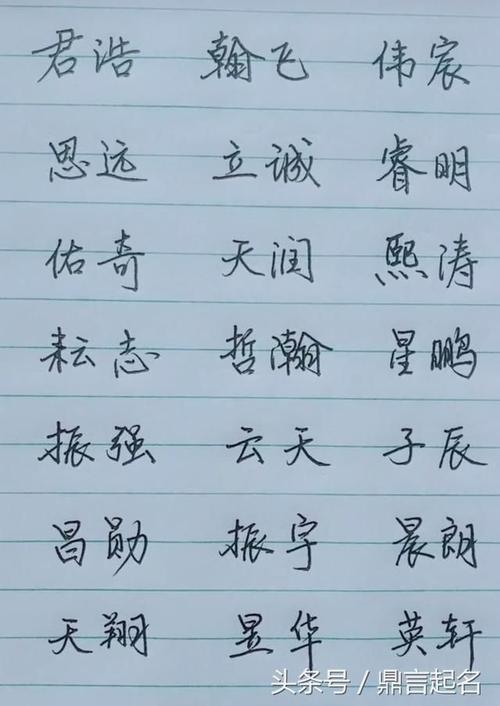 君浩 翰飞 伟宸
思远 立诚 睿明
佑奇 天润 熙涛
耘志 哲瀚 星鹏
振强 云天 子辰
昌勋 振宇 晨朗
天翔 昱华 英轩
头条号 / 鼎言起名